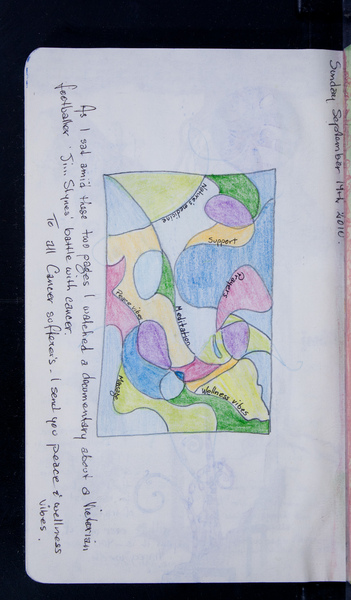 Sunday September 19th, 2010.
medicine
Support
Prayers
Peace vibes
Meditation
Wellness vibes
As I sat amid these two pages I watched a documentary about a Victorian
footballer - Jim Stynes' battle with cancer.
To all Cancer sufferer's - I send you peace & wellness
vibes.